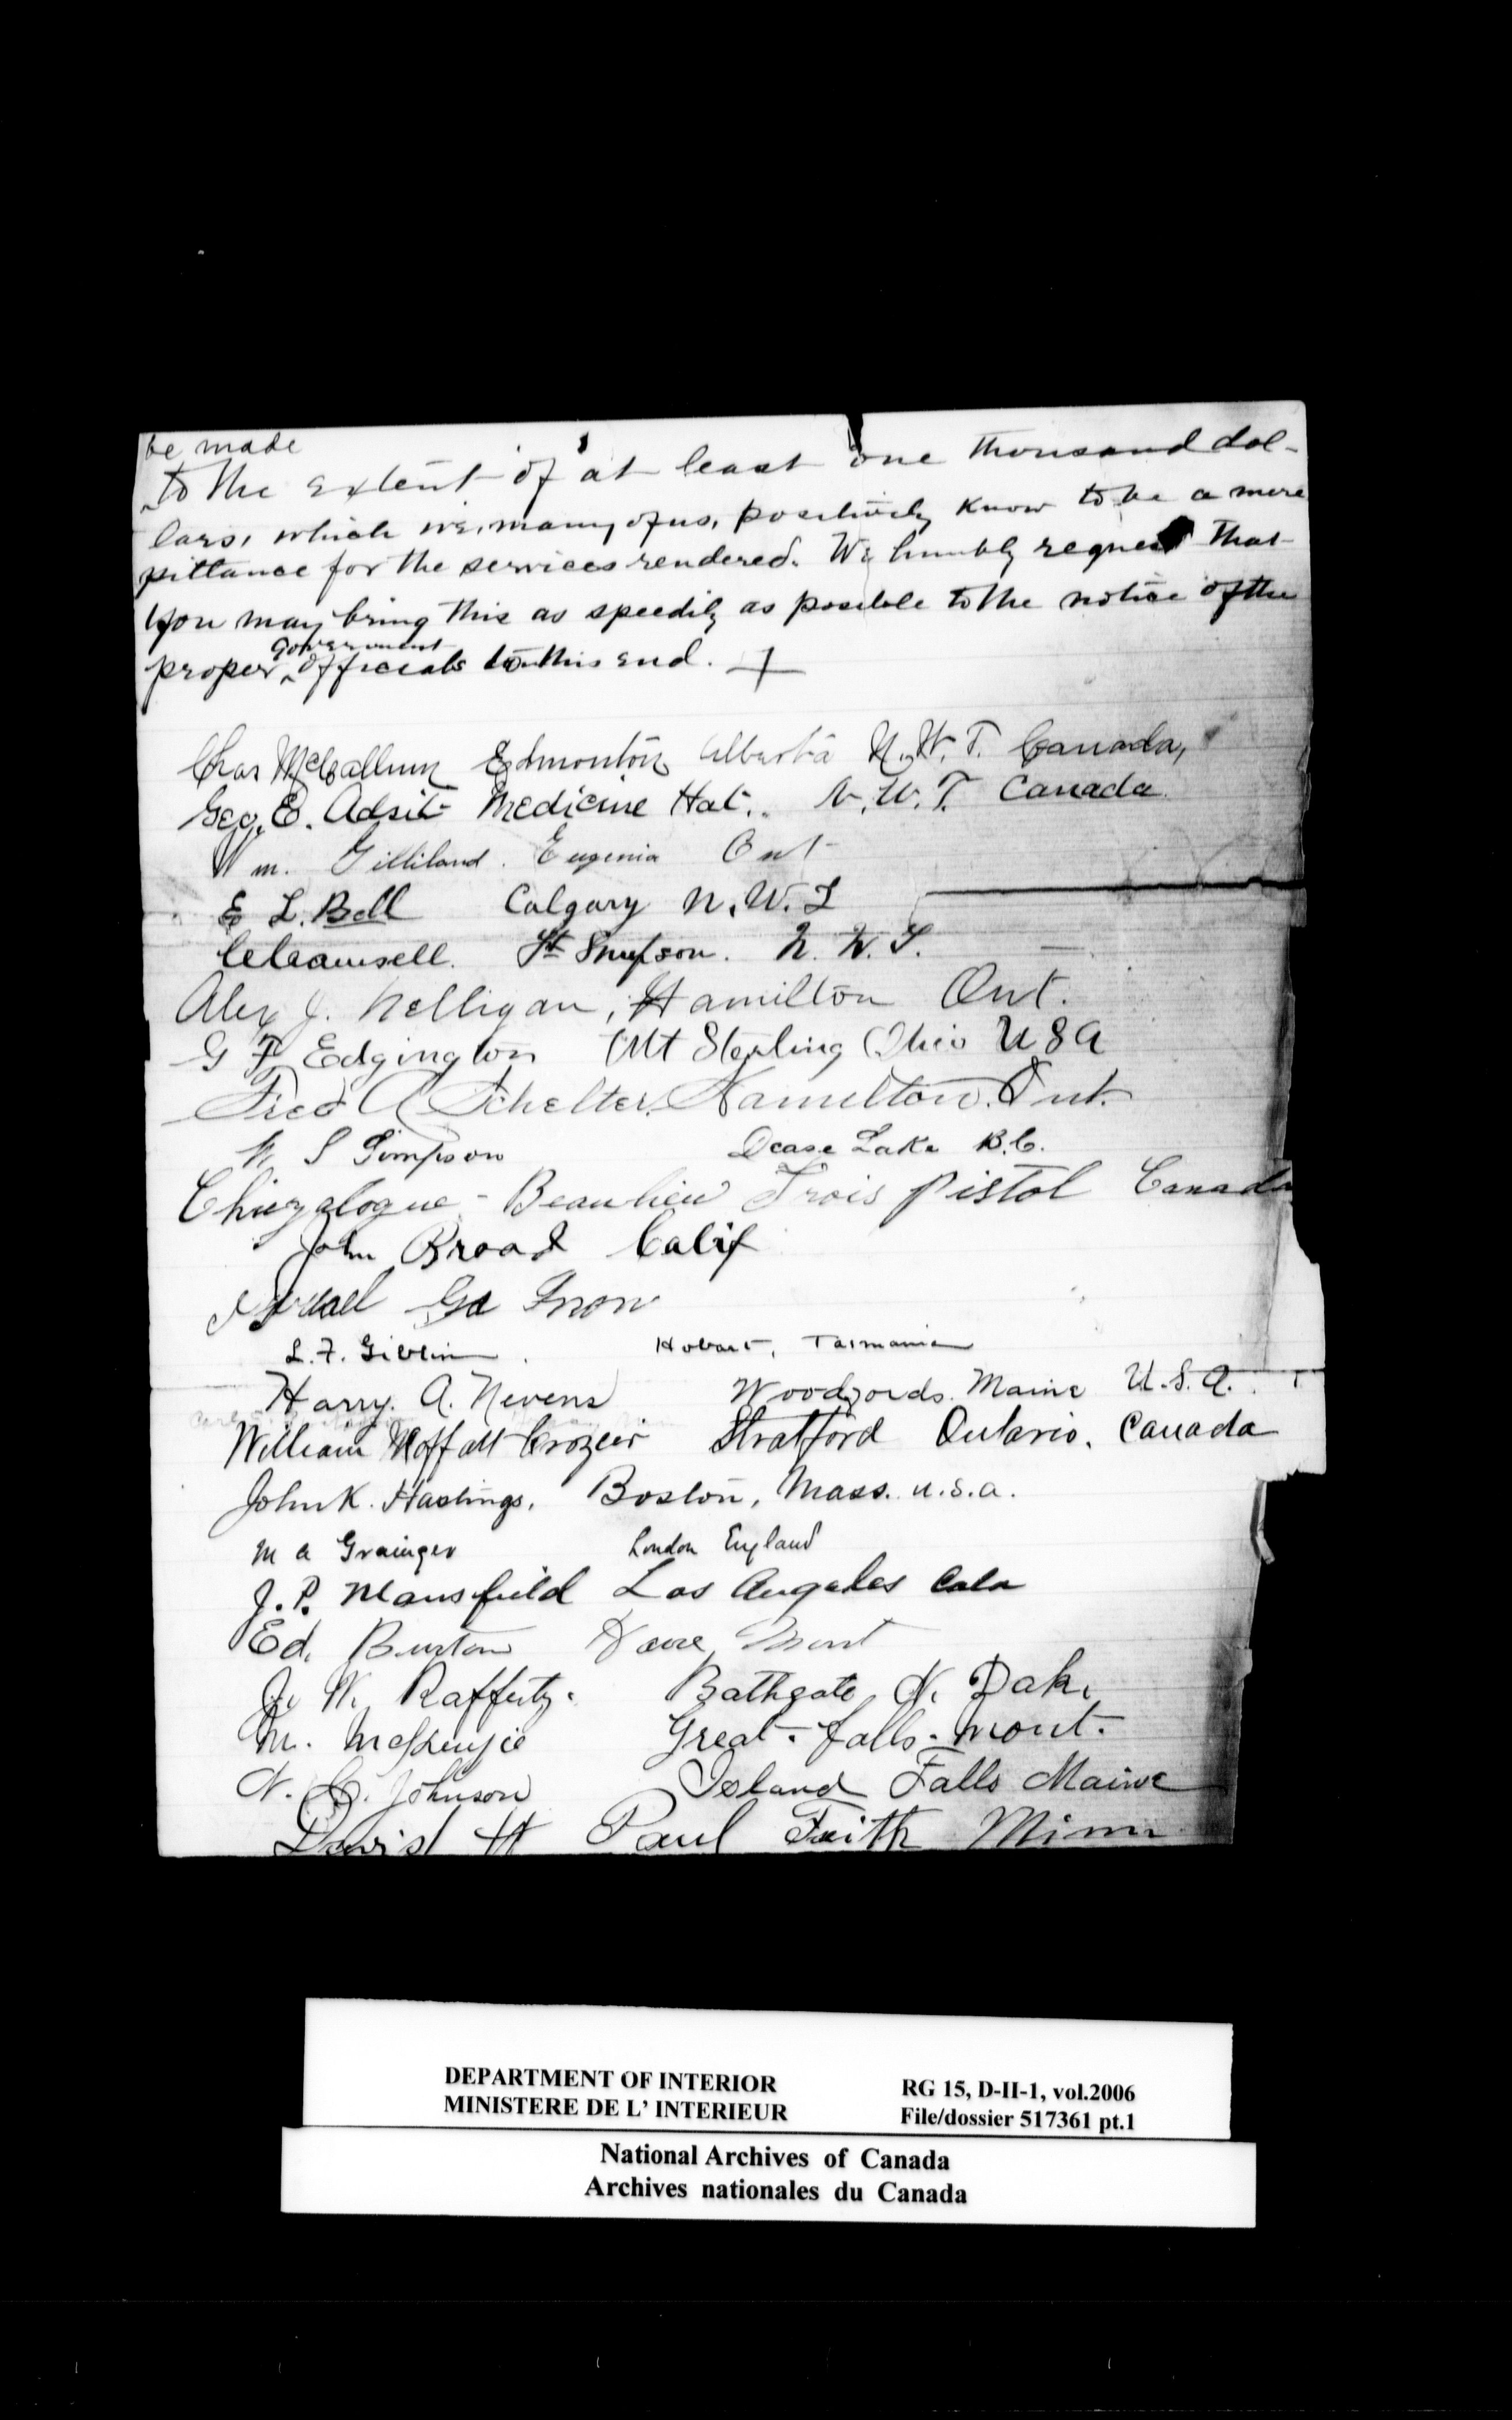 be made
to the extent of at least one thousand dol-
lars, which we, many of us, positively know to be a mere
pittance for the services rendered. We humbly request that
you may bring this as speedily as posible to the notice of the
Government
proper officials to this end.
Chas McCallum Edmonton Alberta N.W.T. Canada,
Geo. E. Adsit Medicine Hat. N.W.T. Canada
Wm. Gilliland. Eugenia Ont
E L. Bell Calgary N.W.T
Camsell. Ft Simpson. N.W.T.
Alex J. Nelligan, Hamilton Ont.
G F Edgington Mt Sterling Ohio U S A
Fred A Schelter, Hamilton. Ont.
S Simpson Dease Lake B.C.
Beaulieu Trois Pistol Canada
John Broad Calif
Snow
L. F. Giblin Hobart, Tasmania
Harry. A. Nevens Woodfords. Maine U.S.A.
William Moffatt Crozier Stratford Ontario. Canada
John K. Hastings, Boston, Mass. U.S.A.
M A Grainger London England
J. P. Mansfield Los Angeles Cala
Ed. Burton Havre, Mont
J. W. Rafferty. Bathgate, N. Dak.
M. McKenzie Great-falls-Mont.
N. C. Johnson Island Falls Maine
David H Paul Faith Minn
DEPARTMENT OF INTERIOR RG 15, D-II-1, vol.2006
MINISTERE DE L' INTERIEUR File/dossier 517361 pt.1
National Archives of Canada
Archives nationales du Canada